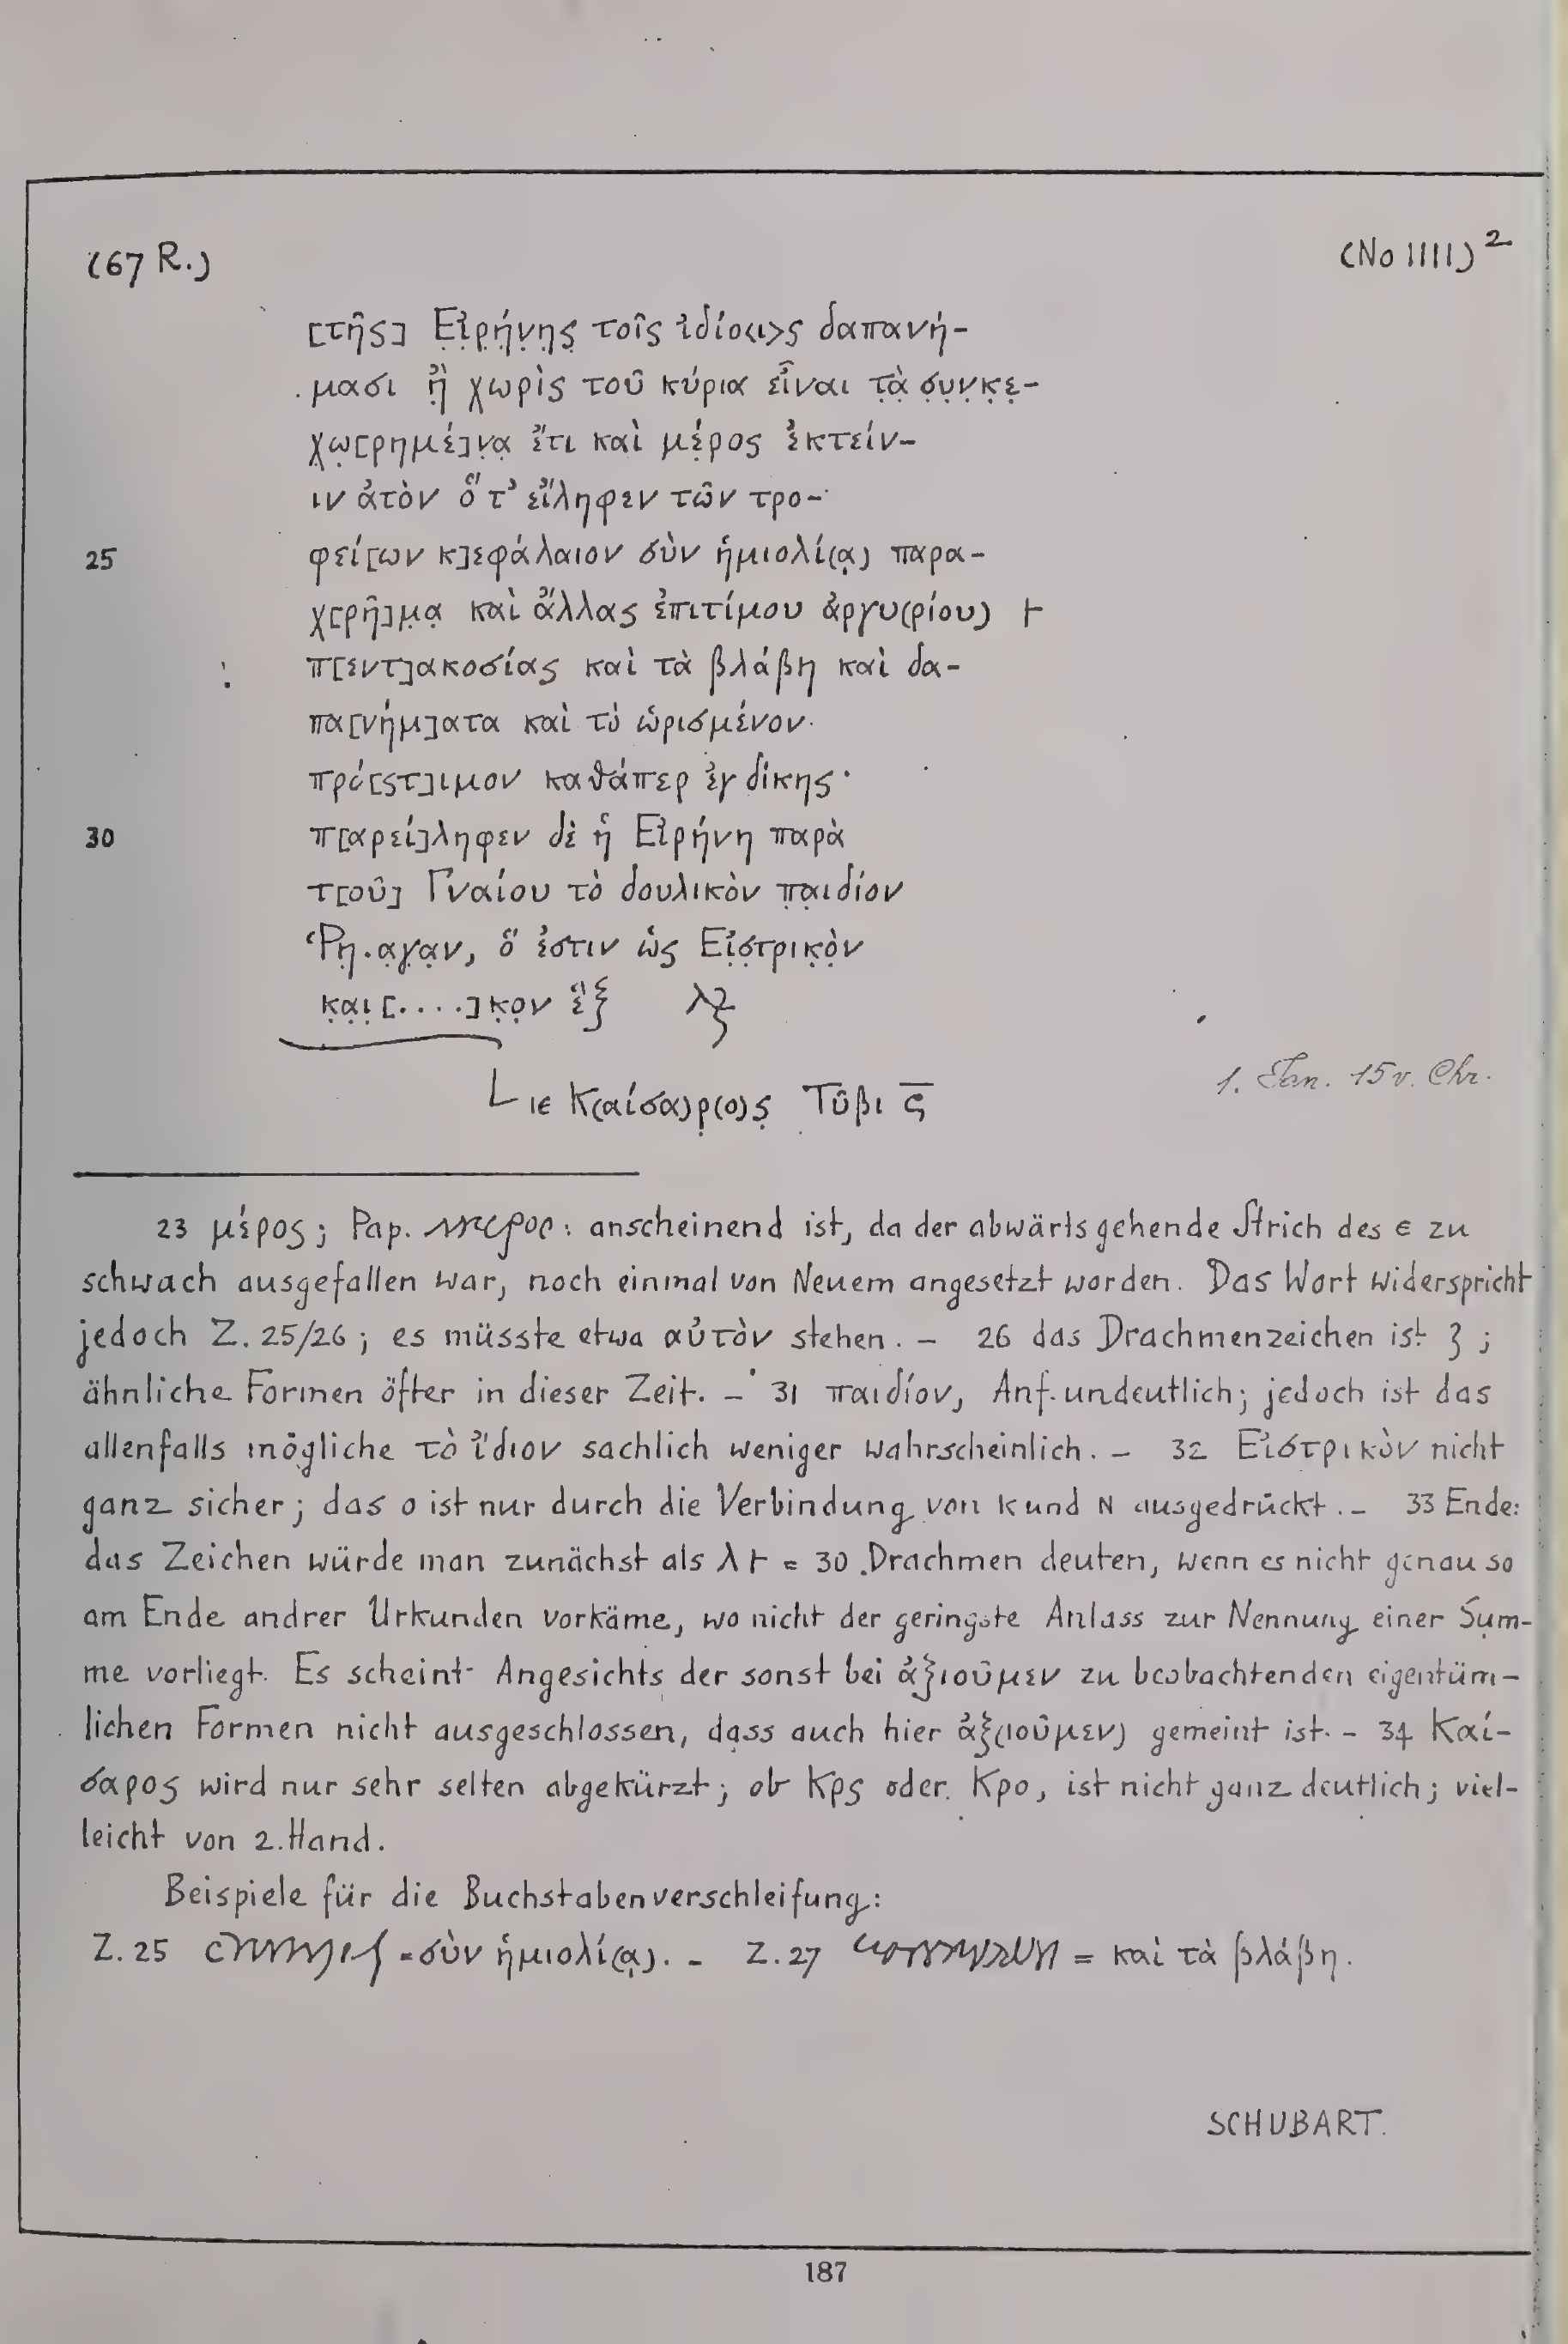 (67 R.) (No IIII)²
[τῆς] Ẹἰρ̣ή̣ν̣η̣ς̣ τοῖς ἰδίο<ι>ς δαπανή-
μασι ἢ̣ χωρὶς τοῦ κύρια εἶναι τ̣ὰ̣ σ̣υ̣ν̣κ̣ε̣-
χ̣ω̣[ρημέ]ν̣α̣ ἔτι καὶ μέρος ἐκτείν-
ιν ἀτὸν ὅ τ' εἴληφεν τῶν τρο-
25 φεί[ων κ]εφάλαιον σὺν ἡμιολί(ᾳ) παρα-
χ[ρῆ]μ̣α̣ καὶ ἄλλας ἐπιτίμου ἀργυ(ρίου) 𐅂
π[εντ]ακοσίας καὶ τὰ βλάβη καὶ δα-
πα[νήμ]ατα καὶ τὸ ὡρισμένον
πρό[στ]ιμον καθάπερ ἐγ δίκης·
30 π[αρεί]ληφεν δὲ ἡ Εἰρήνη παρὰ
τ[οῦ] Γναίου τὸ δουλικὸν π̣α̣ιδίον
Ῥη̣.α̣γ̣α̣ν, ὅ ἐστιν ὡς Εἰ̣σ̣τ̣ρικ̣ὸ̣ν
κ̣α̣ι̣[....]κ̣ο̣ν ἓξ
L ιε Κ(αίσα)ρ̣(ο)ς̣ Τῦβι ϛ̅
1. Jan. 15 v. Chr.
23 μέρος; Pap. : anscheinend ist, da der abwärtsgehende Strich des ϵ zu
schwach ausgefallen war, noch einmal von Neuem angesetzt worden. Das Wort widerspricht
jedoch Z. 25/26; es müsste etwa αὐτὸν stehen. – 26 das Drachmenzeichen ist ʒ ;
ähnliche Formen öfter in dieser Zeit. – 31 παιδίον, Anf. undeutlich; jedoch ist das
allenfalls mögliche τὸ ἴδιον sachlich weniger wahrscheinlich. – 32 Εἰστρικὸν nicht
ganz sicher; das o ist nur durch die Verbindung von κ und N ausgedrückt. – 33 Ende:
das Zeichen würde man zunächst als λ𐅂 = 30 Drachmen deuten, wenn es nicht genau so
am Ende andrer Urkunden vorkäme, wo nicht der geringste Anlass zur Nennung einer Sum-
me vorliegt. Es scheint Angesichts der sonst bei ἀξιοῦμεν zu beobachtenden eigentüm-
lichen Formen nicht ausgeschlossen, dass auch hier ἀξ(ιοῦμεν) gemeint ist. – 34 Καί-
σαρος wird nur sehr selten abgekürzt; ob Κρς oder Κρο, ist nicht ganz deutlich; viel-
leicht von 2. Hand.
Beispiele für die Buchstabenverschleifung:
Z. 25 = σὺν ἡμιολί(ᾳ). – Z. 27 = καὶ τὰ βλάβη.
SCHUBART.
187